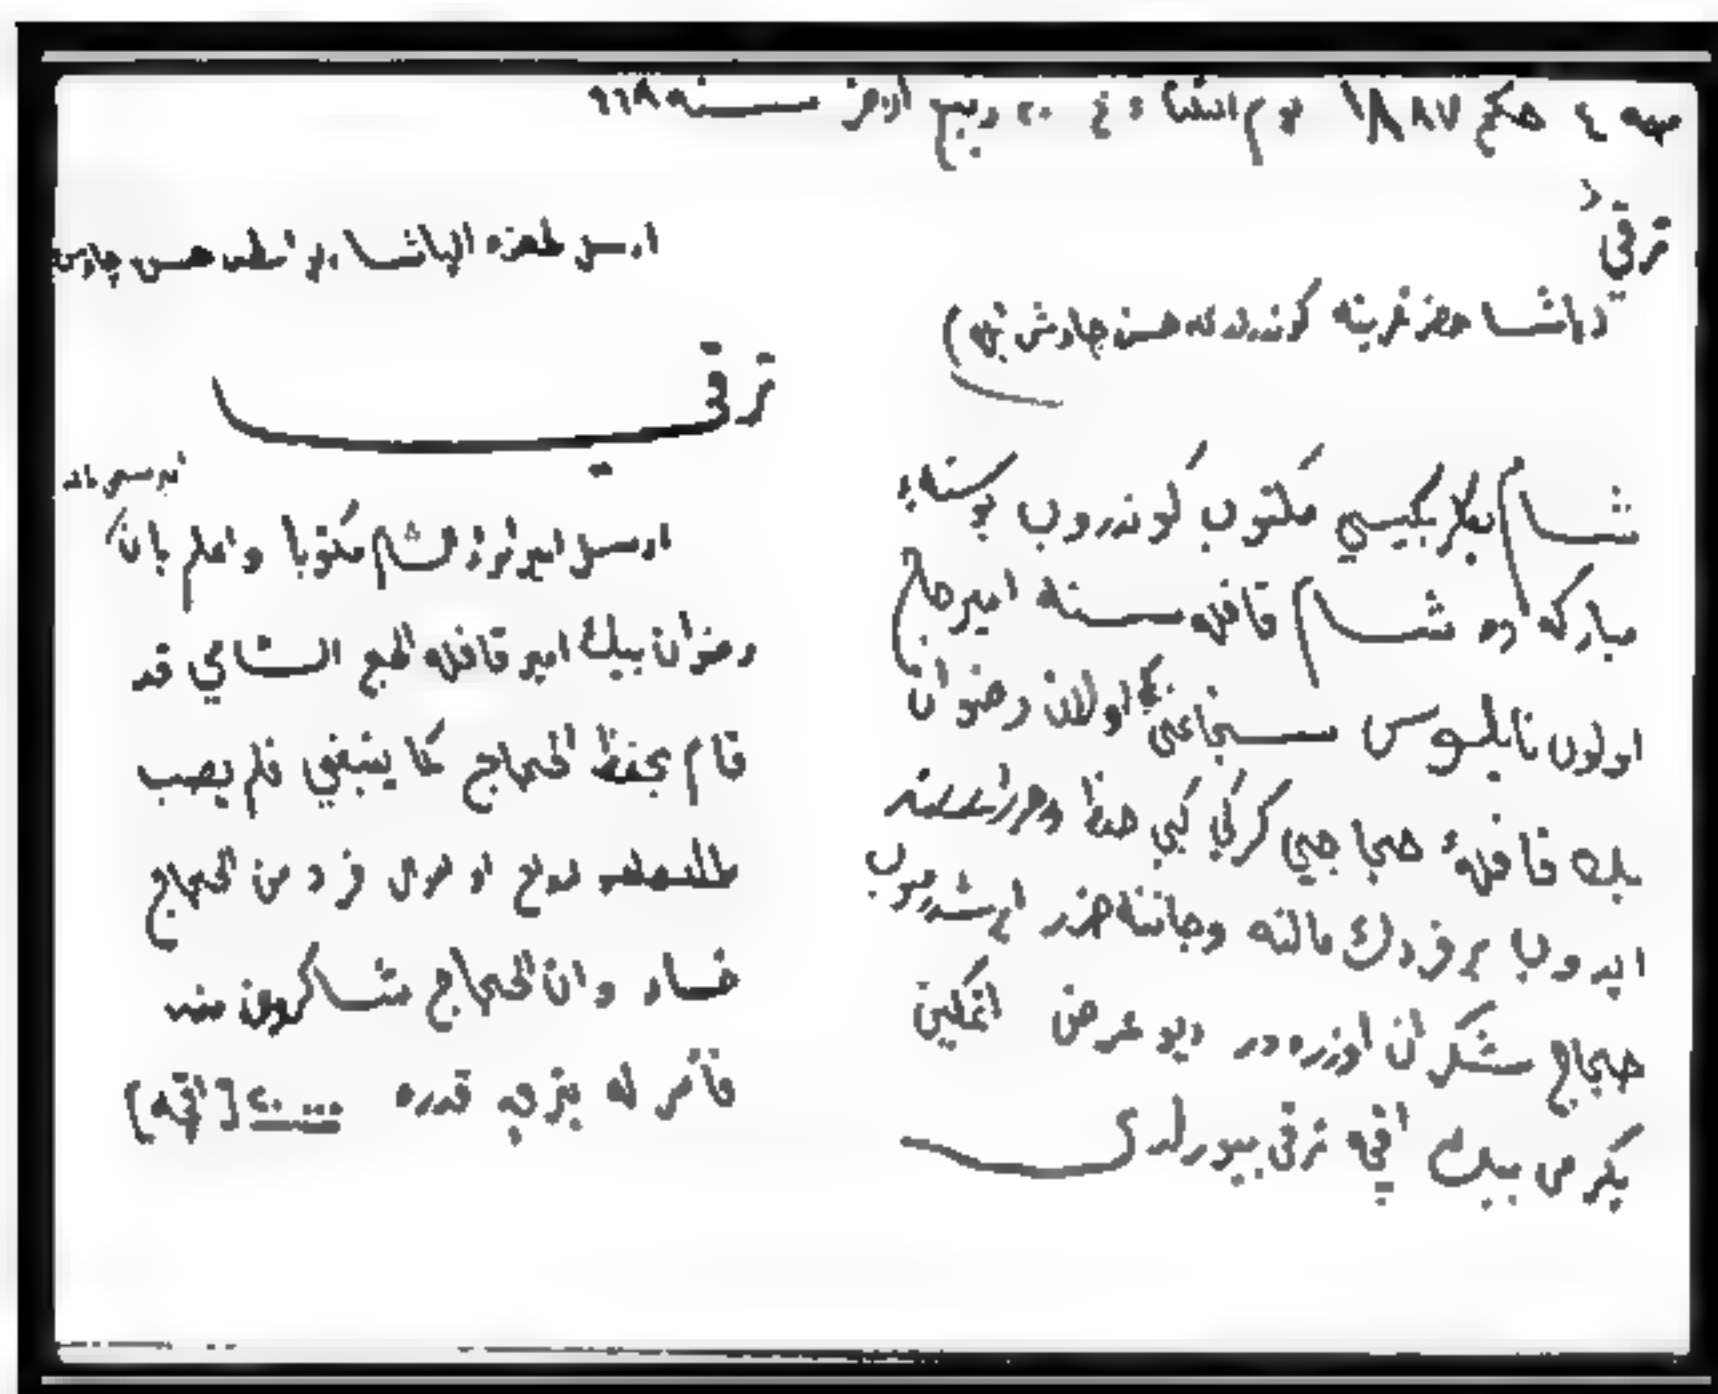 حكم ١٨٨٧ يوم الثلثا في ٢٠ ربيع الاخر سنه ٩٦٨
ترقي
پاشا حضرتلرينه كوندرلدى حسن چاوش ايله)
شام بكلربكيسي مكتوب كوندروب بو سنه
مباركه ده شام قافله سنه امير حاج
اولون نابلوس سنجاغى بكى اولان رضوان
بك قافلهٔ حجاجي كركي كبي حفظ وحراست
ايدوب بر فردك مالنه وجاننه ضرر
حجاج شكران اوزره در ديو عرض اتمكين
يكرمى بيك اقچه ترقى بيورلدى
ارسل لحضرة الباشا بواسطة حسن چاوش
ترقي
ارسل امير امراء الشام مكتوبا واعلم بان
رضوان بيك امير قافله الحج الشامي قد
قام بحفظ الحجاج كما ينبغي فلم يصب
مال او فرد من الحجاج
ضرر وان الحجاج شاكرون منه
فأمر له بترقيه قدره ٢٠٠٠٠ [اقچه]